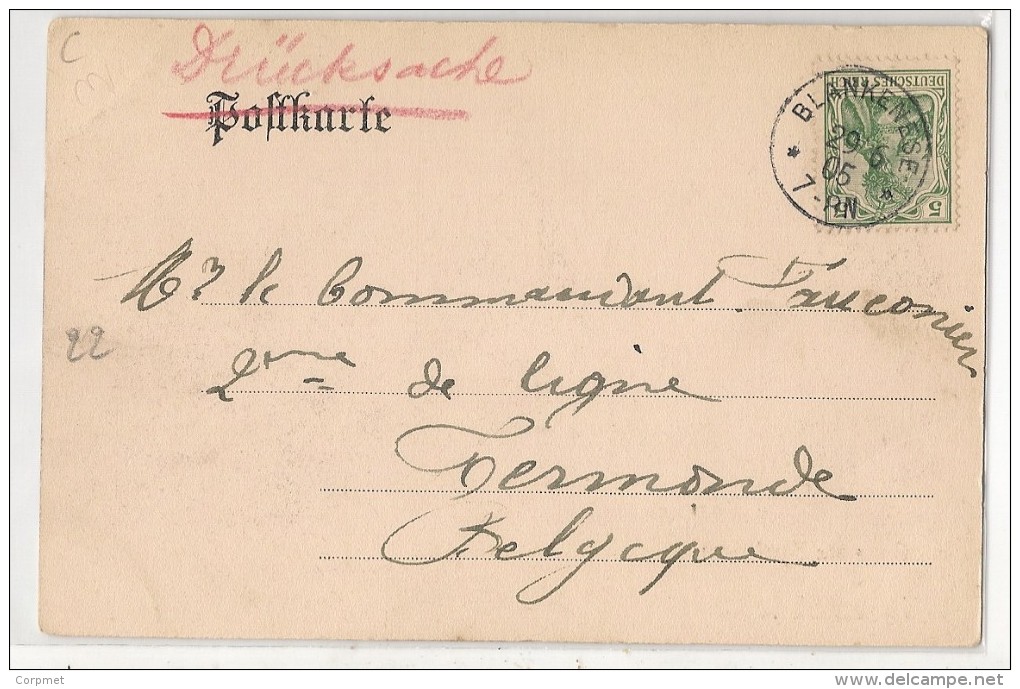 C
Drücksache
Postkarte
DEUTSCHES REICH
5 5
* BLANKENESE *
29 6
05
7-8N
Mr le Commandant Fauconier
22
2me de ligne
Termonde
Belgique
Corpmet